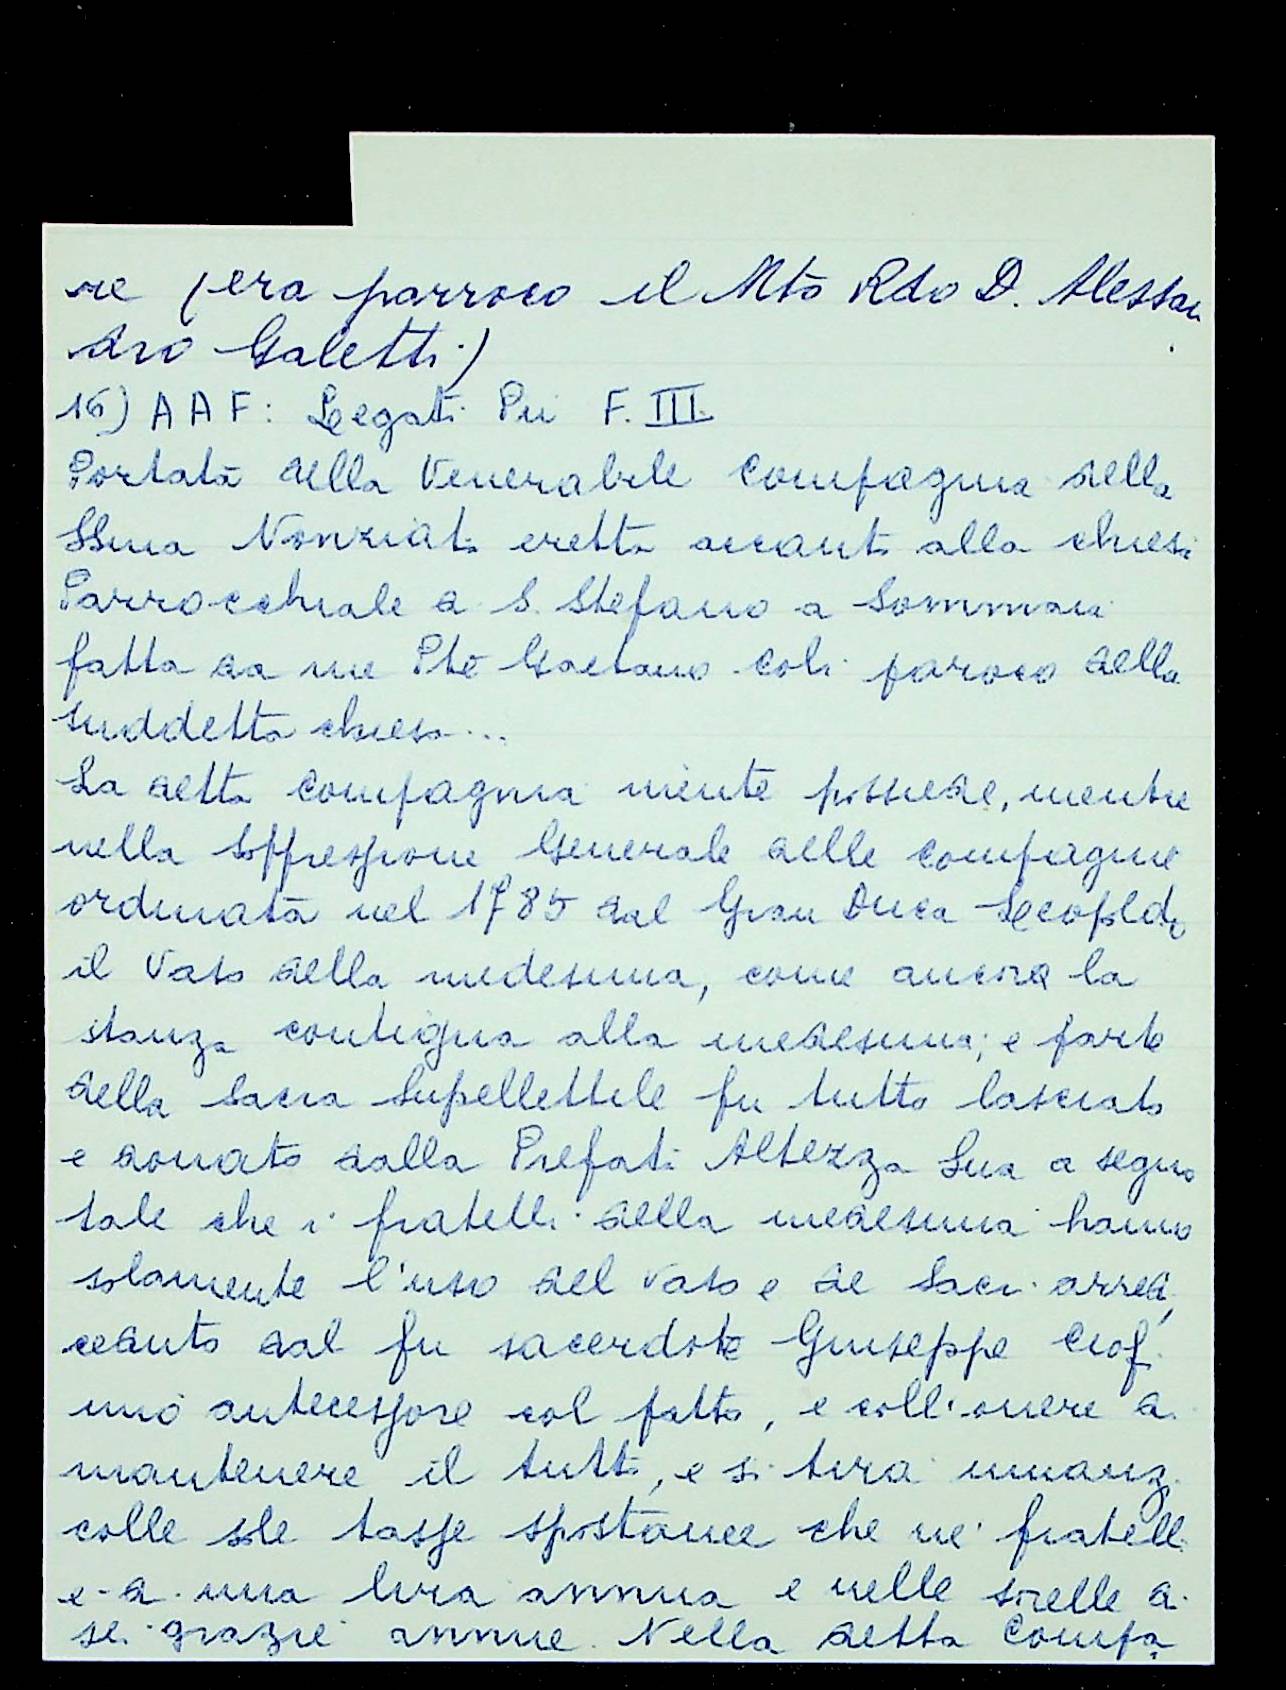 re (era parroco il Mto Rdo D. Alessan
dro Galetti)
16) A A F: Legati Pii F. III.
Portata della Venerabile Compagnia della
SSma Nonziata eretta accanto alla chiesa
Parrocchiale di S. Stefano a Sommaia
fatta da me Pte Gaetano Coli paroco della
suddetta chiesa...
La detta Compagnia niente possiede, mentre
nella Soppressione Generale delle Compagnie
ordinata nel 1785 dal Gran Duca Leopoldo
il Vaso della medesima, come ancora la
stanza contigua alla medesima; e parte
della Sacra Supellettile fu tutto lasciato
e donato dalla Prefata Altezza Sua a segno
tale che i fratelli della medesima hanno
solamente l'uso del Vaso e de Sacri arredi,
ceduto dal fu sacerdote Giuseppe Ciofi
mio antecessore col patto, e coll'onere di
mantenere il tutto, e si tira innanzi
colle sole tasse spontanee che ne' fratelli
e di una lira annua e nelle sorelle di
sei grazie annue. Nella detta Compa